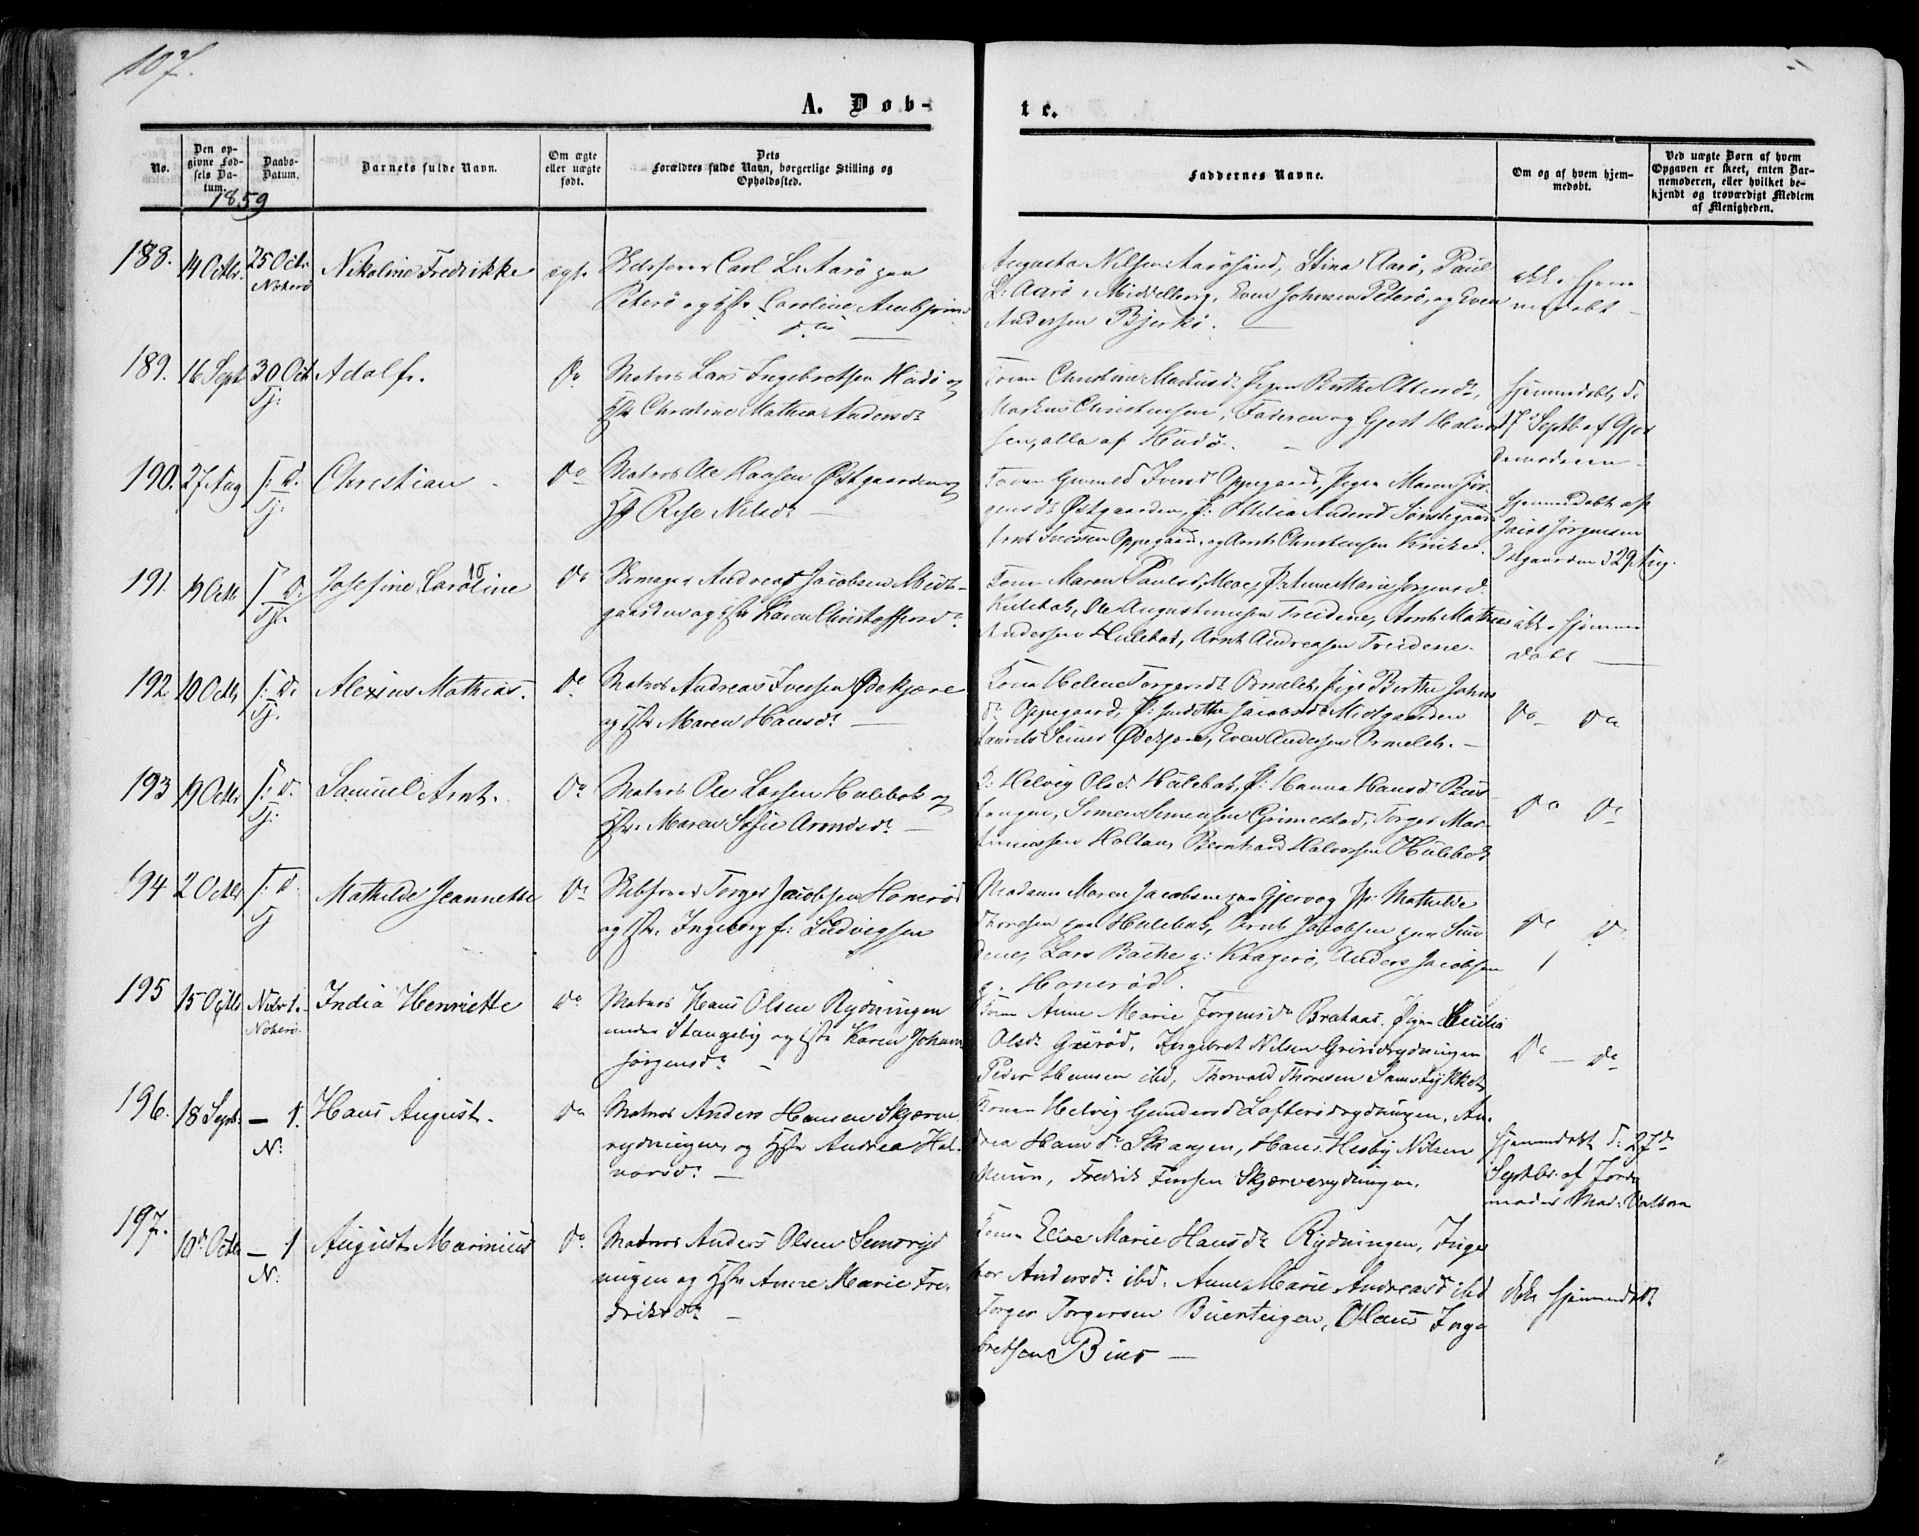 107.
A. Døb-
te.
No.
Den op-
givne Fød-
sels Da-
tum.
Daabs-
Datum.
Barnets fulde Navn.
Om ægte
eller uægte
født.
Dets
Forældres fulde Navn, borgerlige Stilling og
Opholdssted.
Faddernes Navne.
Om og af hvem hjem-
medøbt.
Ved uægte Børn af hvem
Opgaven er skeet, enten Bar-
nemoderen, eller hvilket be-
kjendt og troværdigt Medlem
af Menigheden.
1859
188.
14 Octbr.
25 Octr
Nøterø
Nikoline Fredrikke
ægte
Carl L. Aarø paa
Peterø og Hst. Caroline Ambjørns
dtr
Augusta Nilsen Aarøsund, Stina Aarø, Paul
L. Aarø, Middelborg, Even Johnsen Peterø, og Even
Andersen Bjerkø.
ikke hjem
medøbt
189.
16 Sept
30 Oct
Tj:
Adolf.
Do
Matros Lars Ingebretsen Hudø og
Hst Christine Mathea Andersdt
Kone Christine Markusdt Pigen Berthe Olsensdt,
Markus Christensen, Faderen og Gjert Halvor
sen, alle af Hudø.
hjemmedøbt d.
17 Septb af Gjor
demoderen
190.
27 Aug
s: d.
Tj:
Christian
Do
Matros Ole Hansen Østgaarden og
Hst Rise Nilsdt
Konen Gunild Iversd Oppegaard, Pigen Maren Jør-
gensdt Østgaarden, P: Otilia Andersd Søndregaar
Arnt Iversen Oppegaard, og Arnt Christensen Kruke.
hjemmedøbt af
Jacob Jørgensen
Østgaarden d 29 Aug.
191.
9 Octb
s: d.
Tj:
Josefine Caroline
Do
Skomager Andreas Jacobsen Midt-
gaarden og Hst Karen Christoffersdt.
Konen Maren Paulsd, Moe, P Anne Marie Jørgensd.
Hulebak, Ole Augustinusen Treidene, Arnt Mathias
Andersen Hulebak, Arnt Andreasen Treidene.
ikke hjemme
døbt
192.
10 Octbr
s: d.
Tj.
Alexius Mathias.
Do
Matros Andreas Iversen Ødekjære
og Hst Maren Hansdt
Kone Helene Torgersdt Ormelet, Pige Berthe Johns
dt Oppegaard, P: Jacobsdt Midtgaarden
Laurits Ødekjære, Even Andersen Ormelet.
Do do
193
19 Octbr
s: d.
Tj.
Samuel Arnt.
Do
Matros Ole Larsen Hulebak og
Hst. Maren Sofie Arntsdt
K: Helvig Olsd Hulebak, P: Hanna Hansd Bus
tangen, Simen Simensen Grimestad, Torger Mar-
tiniussen Holtan, Bernhard Halvorsen Hulebak
Do Do
194
2 Octbr
s: d.
Tj
Mathilde Jeannette
Do
Torger Jacobsen Honerød
og Hst. Ingeborg f: Ludvigsen
Madam Maren Jacobsen paa Gjervog Jfr: Mathilde
Thoresen paa Hulebak, Arnt Jacobsen paa Sun
dene, Lars Bache p: Kragerø, Anders Jacobsen
p. Honerød.
Do D.
195
15 Octbr
Nvbr 1.
Nøterø
India Henriette
Do
Matros Hans Olsen Rydningen
under Stangeby og Hst Karen Johanne
Jørgensdt
Konen Anne Marie Jørgensdt Brataas. Pigen Cecilia
Olsdt Gurød, Ingebret Nilsen Grindrydningen
Peder Hansen ibd, Thorvald Thoresen Samstykket.
Do do
196.
18 Septb.
1.
N:
Hans August.
Do
Matros Anders Hansen Skjerve
rydningen, og Hst Andrea Hal-
vorsdt
Konen Helvig Gundersd Loftersrydningen, An-
drea Hansdt Skaugen, Hans Hesby Nilsen
Muren, Fredrik Jensen Skjerverydningen.
hjemmedøbt d: 27de
Septbr. af Jorde
moder Mad:
197.
10d Octbr
1
N:
August Marinius
Do
Matros Anders Olsen Semsryd
ningen og Hst Anne Marie Fre-
driksdt
Konen Elise Marie Hansdt Rydningen, Inge
bor Andersdt ibd. Anne Marie Andreasd ibd
Torger Torgersen Buerteigen, Olaus Inge
bretsen Buer
ikke hjemmedøbt